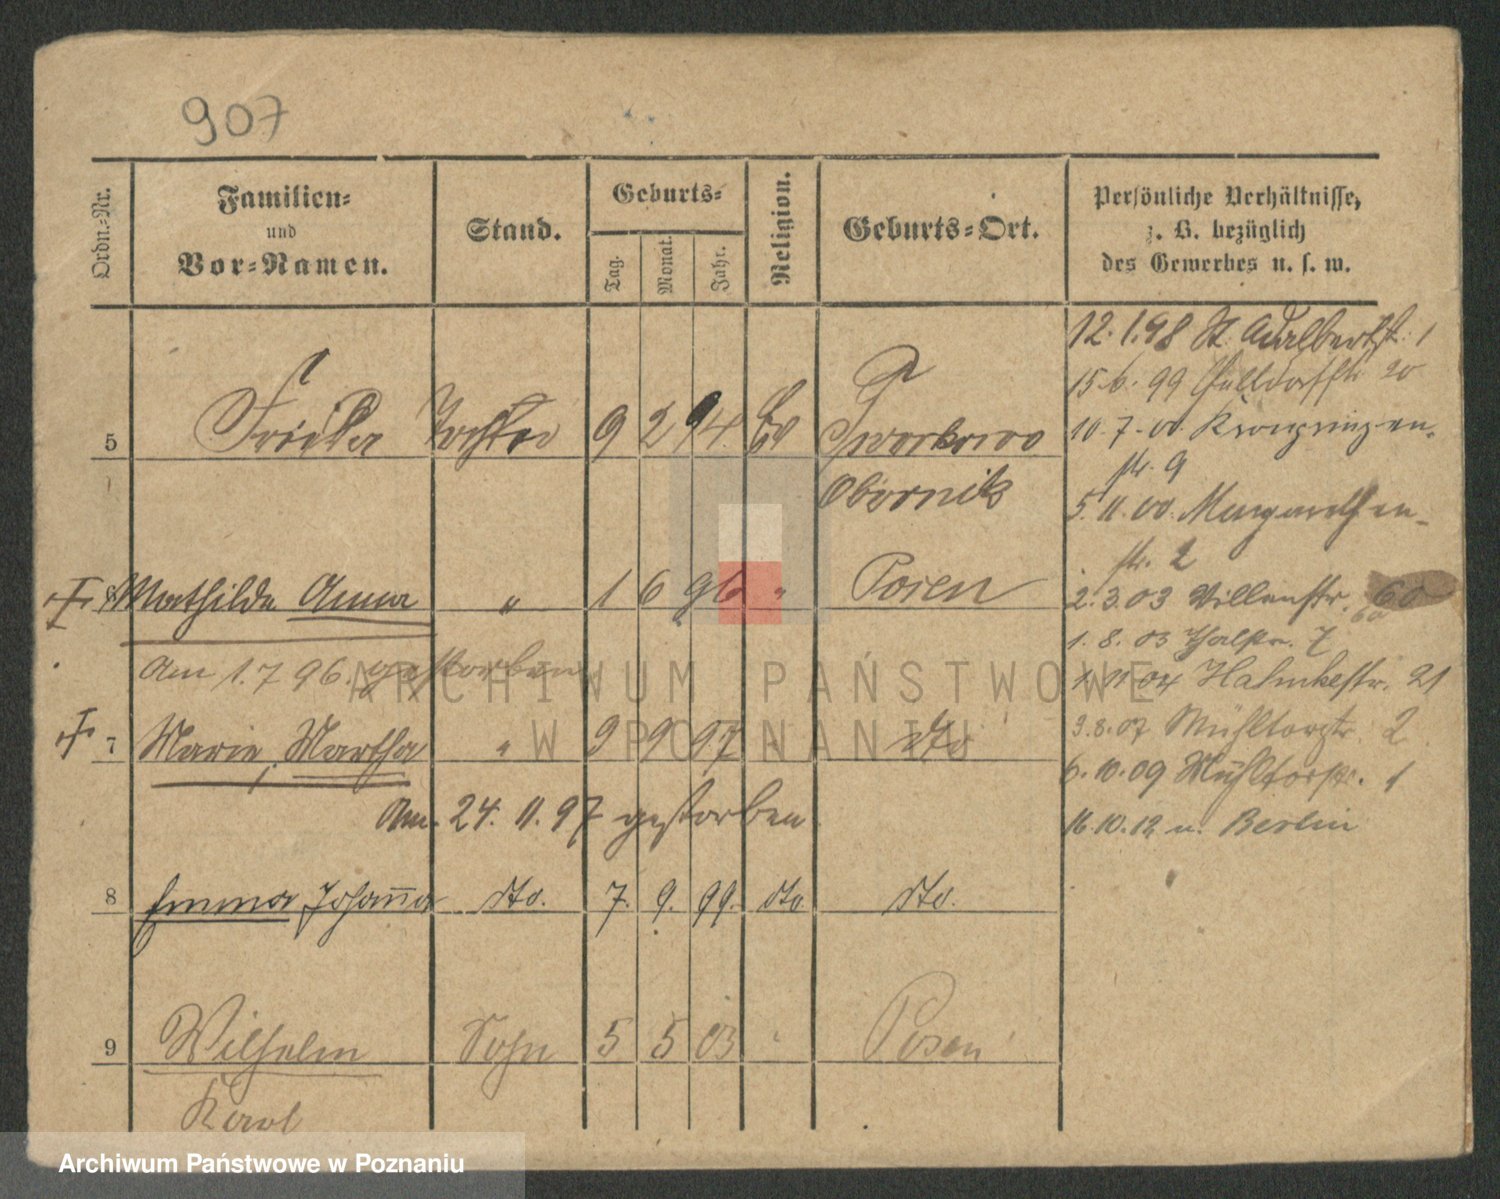 907
Ordn.-Nr.
Familien-
und
Vor-Namen.
Stand.
Geburts-
Tag.
Monat.
Jahr.
Religion.
Geburts-Ort.
Persönliche Verhältnisse,
z. B. bezüglich
des Gewerbes u. s. w.
5 Frieda Tochter 9 2 94. Ev
Obornik
6 Mathilde Anna " 1 6 96 " Posen
Am 1. 7 96. gestorben
7 Marie, Martha " 9 9 97 " dto
Am. 24. 11. 97 gestorben.
8 Emma Johan̄a dto. 7. 9. 99. dto dto.
9 Wilhelm Sohn 5 5 03 " Posen
Karl
12. 1. 98 St. Adalbertst. 1
15. 6. 99 20
10. 7. 00. Kronprinzen-
str. 9
5. 11. 00. Margarethen-
str. 2
2. 3. 03 Villenstr. 60
60
1. 8. 03 Thalstr. 7
1. 11 04 Halmkestr. 21
3. 8. 07 Mühltorstr. 2
6. 10. 09 Mühltorstr. 1
16. 10. 12 n. Berlin
ARCHIWUM PAŃSTWOWE
W POZNANIU
Archiwum Państwowe w Poznaniu